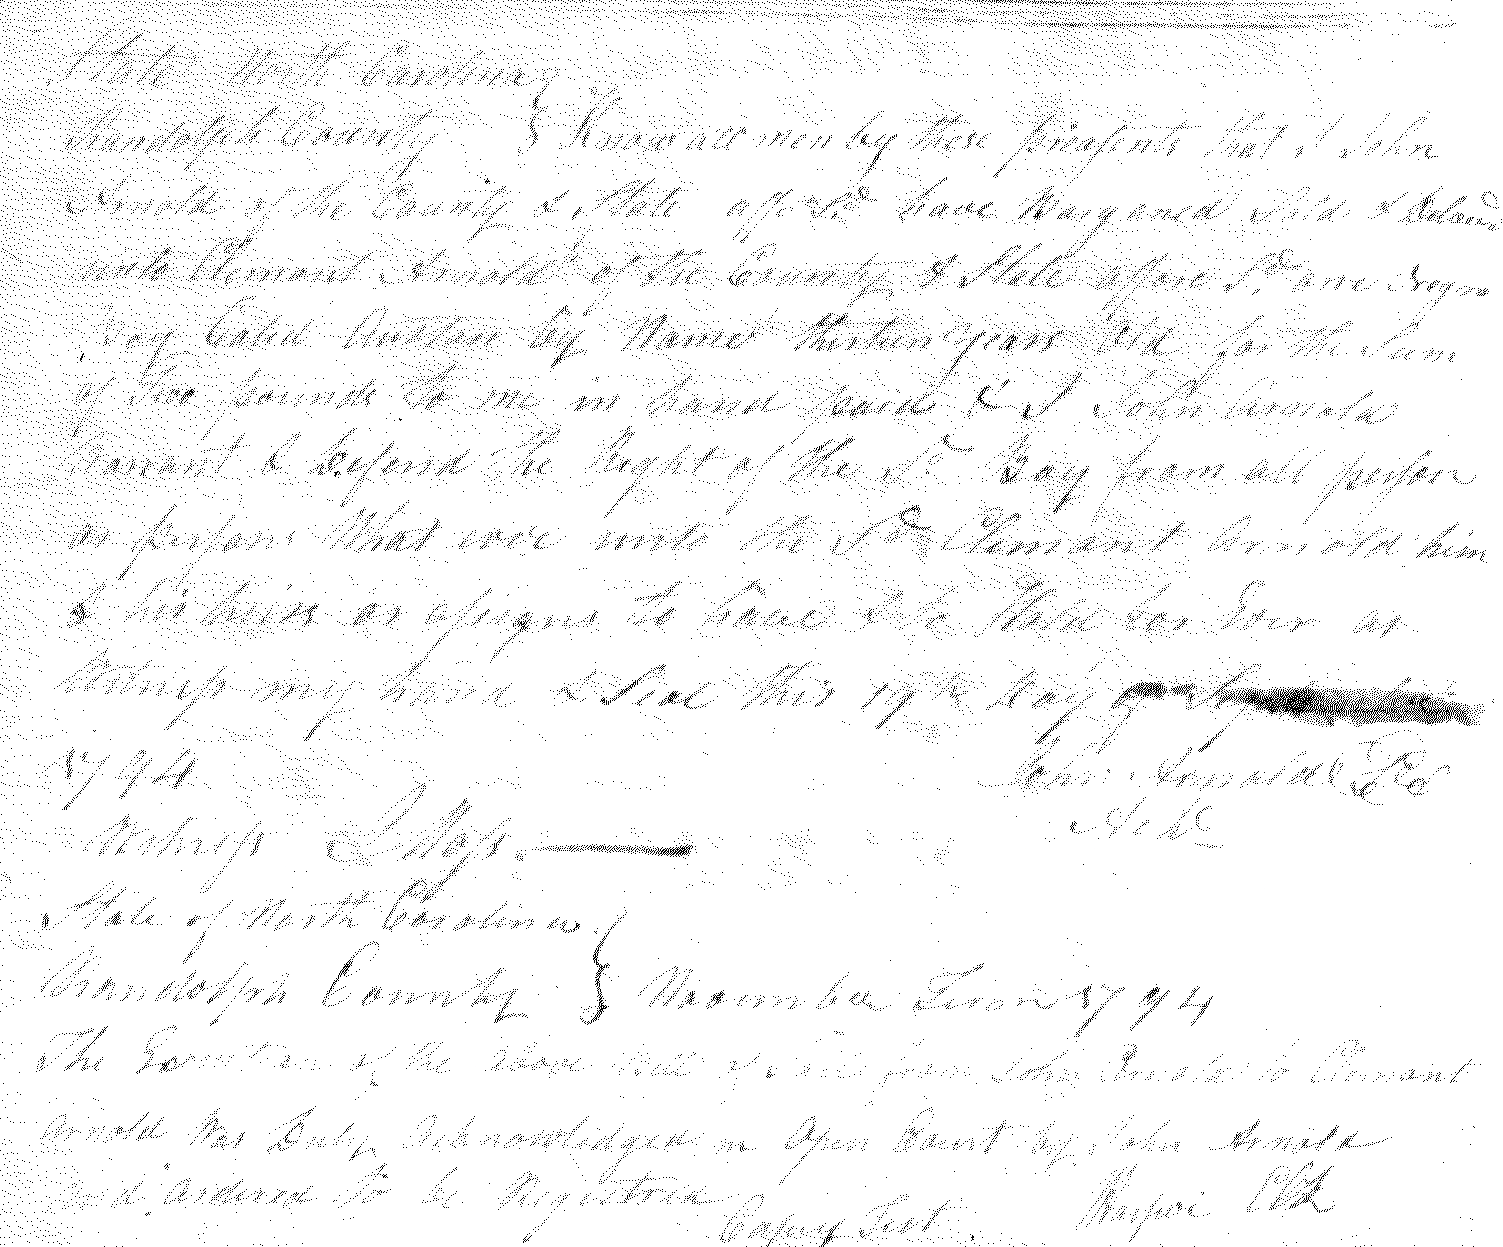 State North Carolina
Randolph County } Know all men by these presents that I John
Arnold of the County & State affore Sd have Bargened Sold & Deliv
unto Clemant Arnold of the County & State affore Sd one Negro
Boy Caled Anstace by Name thirteen years Old for the Sum
of Two pounds To me in hand paid & I John Arnold
Warrant & Defend The Right of the Sd Boy from all person
or persons What ever unto the Sd Clemant Arnold him
& his heirs or assigns to have & to Hold for Ever as
Witness my hand & Seal this 19th Day
1794 John Arnold Seal
Witness Z Moss Ack
State of North Carolina
Randolph County } Novumber Term 1794
The Execution of the above Bill of Sale from John Arnold to Clemant
Arnold Was Duly Acknowlidged in Open Court by John Arnold
and Ordered To be Registred
Copy Test Harper CVA